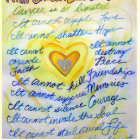 Cancer is so limited
It cannot cripple Love
It cannot shatter Hope
It cannot corrode Faith
It cannot destroy Peace
It cannot kill Friendships
It cannot suppress Memories
It cannot silence Courage
It cannot invade the Soul
It cannot steal eternal Life